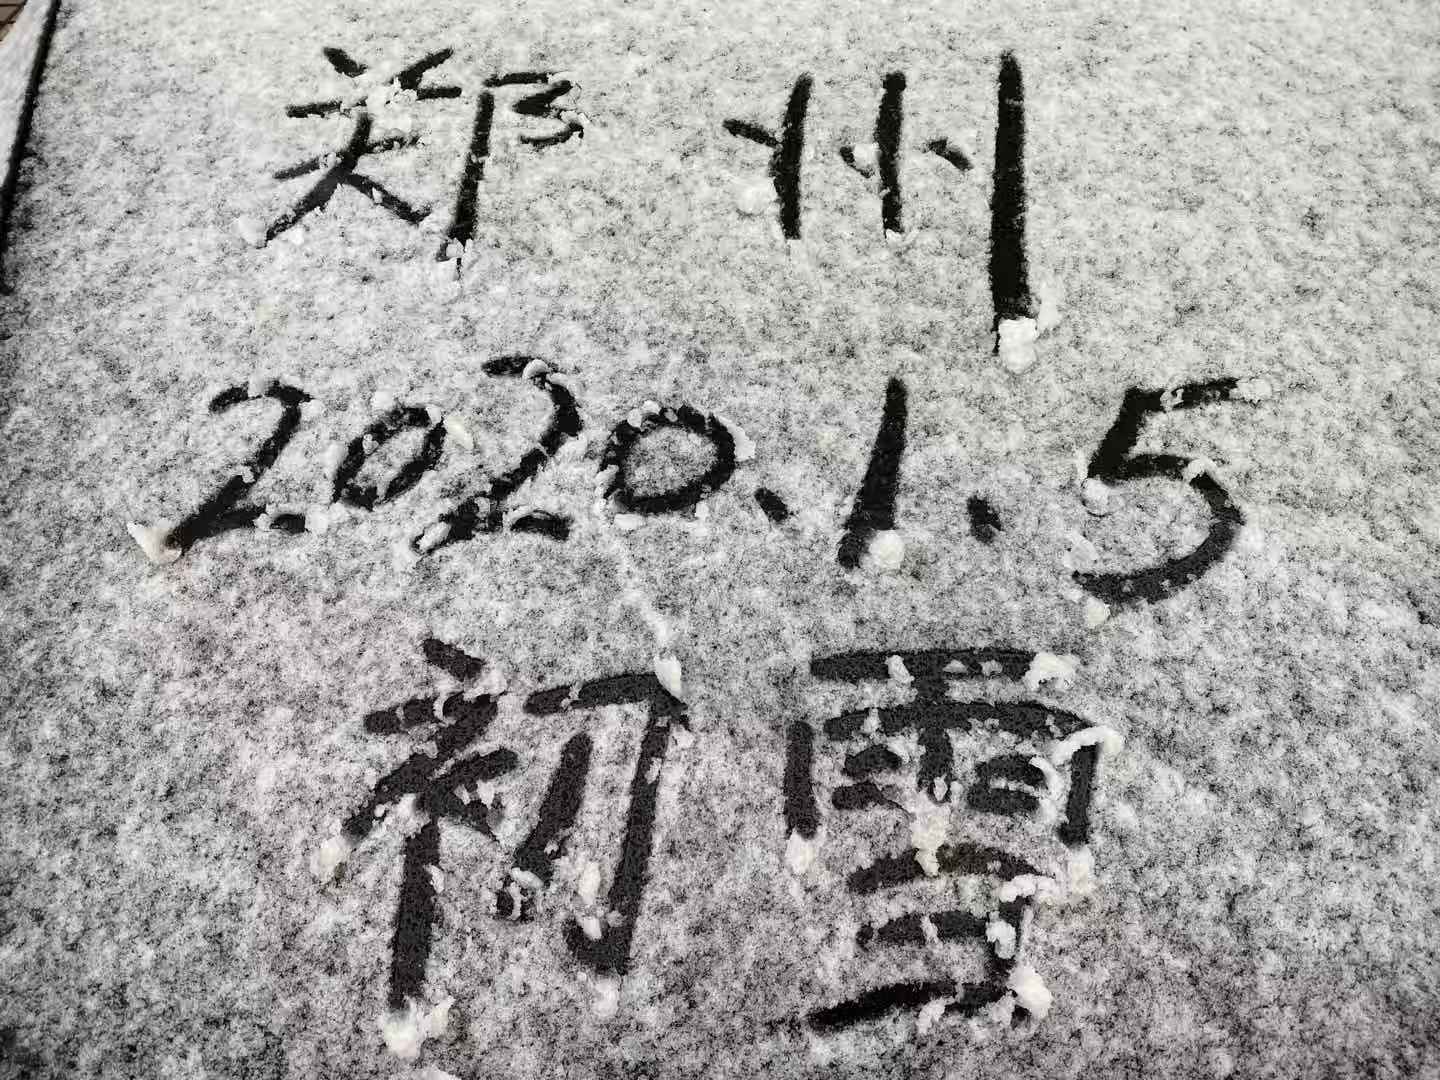 郑州
2020.1.5
初雪